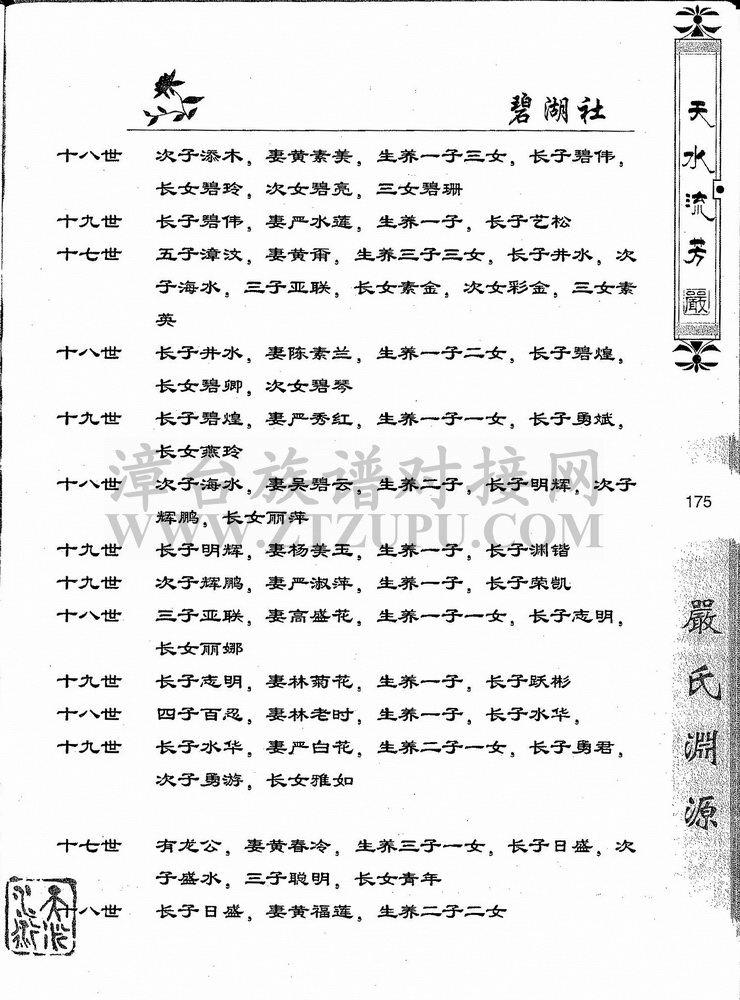 碧湖社
十八世 次子添木，妻黄素美，生养一子三女，长子碧伟，
长女碧玲，次女碧亮，三女碧珊
十九世 长子碧伟，妻严水莲，生养一子，长子艺松
十七世 五子漳汶，妻黄甭，生养三子三女，长子井水，次
子海水，三子亚联，长女素金，次女彩金，三女素
英
十八世 长子井水，妻陈素兰，生养一子二女，长子碧煌，
长女碧卿，次女碧琴
十九世 长子碧煌，妻严秀红，生养一子一女，长子勇斌，
长女燕玲
十八世 次子海水，妻吴碧云，生养二子，长子明辉，次子
辉鹏，长女丽萍
十九世 长子明辉，妻杨美玉，生养一子，长子渊锴
十九世 次子辉鹏，妻严淑萍，生养一子，长子荣凯
十八世 三子亚联，妻高盛花，生养一子一女，长子志明，
长女丽娜
十九世 长子志明，妻林菊花，生养一子，长子跃彬
十八世 四子百忍，妻林老时，生养一子，长子水华，
十九世 长子水华，妻严白花，生养二子一女，长子勇君，
次子勇游，长女雅如
十七世 有龙公，妻黄春冷，生养三子一女，长子日盛，次
子盛水，三子聪明，长女青年
十八世 长子日盛，妻黄福莲，生养二子二女
天水流芳
嚴
175
嚴氏淵源
漳台族谱对接网
WWW.ZTZUPU.COM